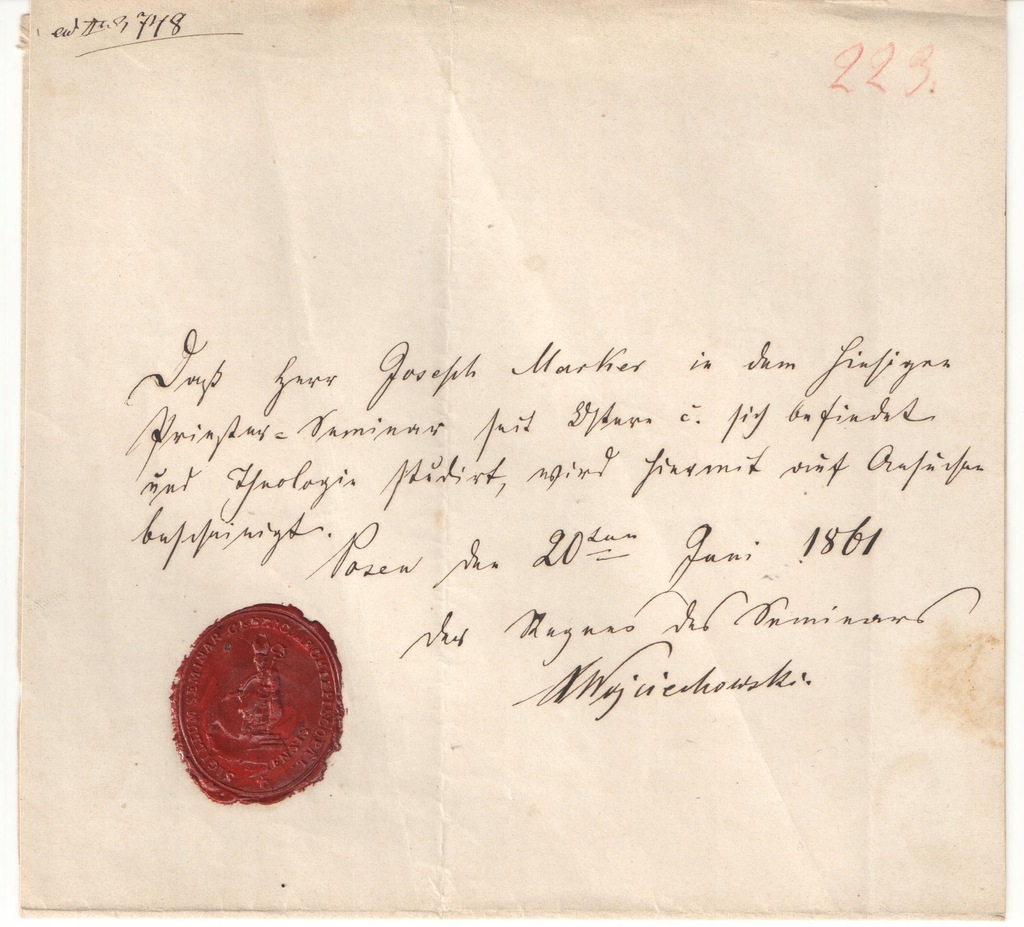 ad No 3748
223.
Daß Herr Joseph Marker in dem hiesigen
Priester=Seminar seit Ostern c. sich befindet
und Theologie studirt, wird hiermit auf Ansuchen
bescheinigt.
Posen den 20ten Juni 1861
Der Regens des Seminars
Wojciechowski.
SIGILLUM SEMINAR